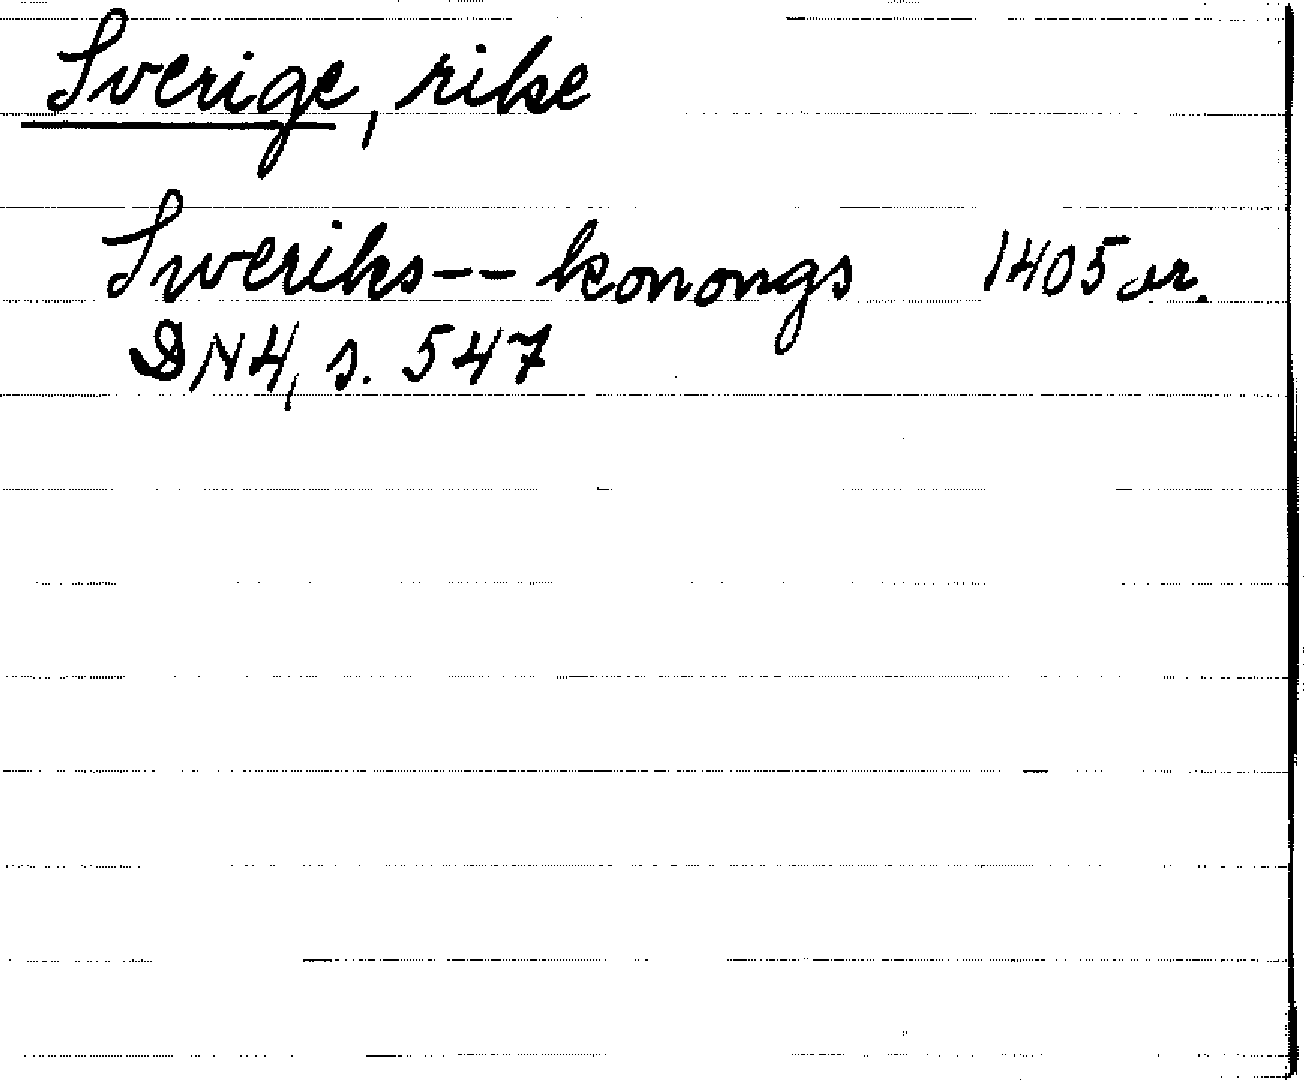 Sverige, rike
Sweriks-- konongs 1405 or.
DN4, s. 547